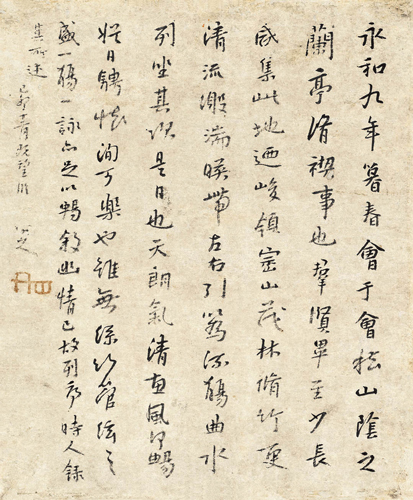 永和九年暮春會于會稽山陰之
蘭亭脩禊事也羣賢畢至少長
咸集此地迺峻領崇山茂林脩竹更
清流激湍暎帶左右引為流觴曲水
列坐其次是日也天朗氣清惠風和暢
娛目騁懷洵可樂也雖無絲竹管絃之
盛一觴一詠亦足以暢敘幽情已故列序時人錄
其所述 己卯 既望 八大山人